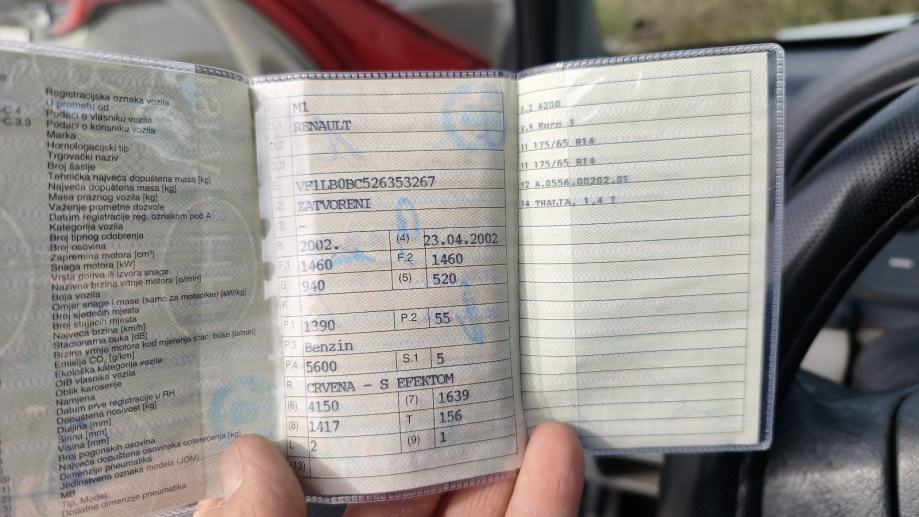 Registracijska oznaka vozila
U prometu od
C.4 Podaci o vlasniku vozila
C.3.3 Podaci o korisniku vozila
Marka
Homologacijski tip
Trgovački naziv
Broj šasije
Tehnička najveća dopuštena masa [kg]
Najveća dopuštena masa [kg]
Masa praznog vozila [kg]
Važenje prometne dozvole
Datum registracije reg. oznakom pod A
Kategorija vozila
Broj tipnog odobrenja
Broj osovina
Zapremina motora [cm³]
Snaga motora [kW]
Vrsta goriva ili izvora snage
Nazivna brzina vrtnje motora [o/min]
Boja vozila
Omjer snage i mase (samo za motocikle) [kW/kg]
Broj sjedećih mjesta
Broj stajaćih mjesta
Najveća brzina [km/h]
Stacionarna buka [dB]
Brzina vrtnje motora kod mjerenja stac. buke [o/min]
Emisija CO₂ [g/km]
Ekološka kategorija vozila
OIB vlasnika vozila
Oblik karoserije
Namjena
Datum prve registracije u RH
Dopuštena nosivost [kg]
Duljina [mm]
Širina [mm]
Visina [mm]
Broj pogonskih osovina
Najveća dopuštena osovinska opterećenja [kg]
Dimenzije pneumatika
Jedinstvena oznaka modela (JOM)
MB
Tip, Model
Dodatne dimenzije pneumatika
M1
RENAULT
D.2
D.3
E VF1LB0BC526353267
(2) ZATVORENI
(3) –
B 2002. (4) 23.04.2002
F.1 1460 F.2 1460
G 940 (5) 520
K
P.1 1390 P.2 55
P.3 Benzin
P.4 5600 S.1 5
R CRVENA – S EFEKTOM
(6) 4150 (7) 1639
(8) 1417 T 156
L 2 (9) 1
(13)
U.2 4200
V.9 Euro 3
11 175/65 R14
11 175/65 R14
12 A.0556.00202.01
14 THALIA, 1,4 I